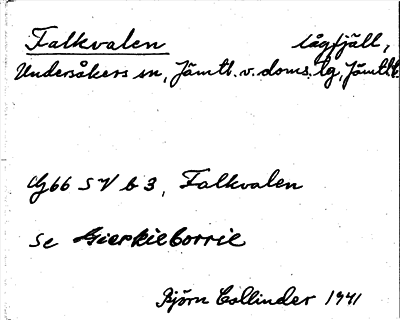 Falkvalen lågfjäll,
Undersåkers sn, Jämtl. v. doms. lg, Jämtl.
G66 SV b 3, Falkvalen
se Gierkieborrie
Björn Collinder 1941